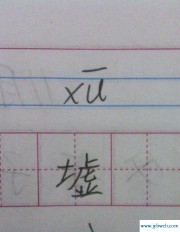 xū
墟
www.ykwcb.com